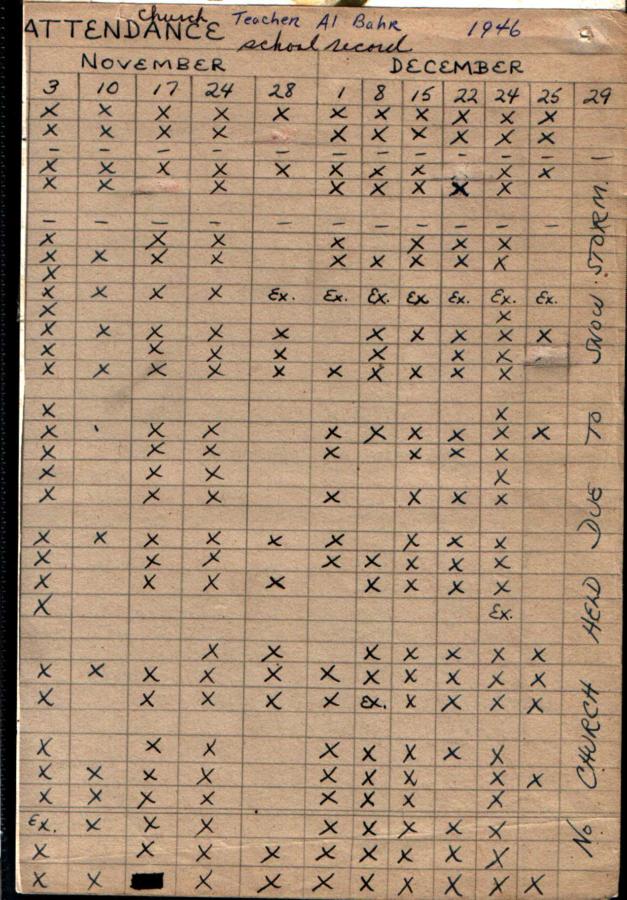 Church Teacher Al Bahr 1946
ATTENDANCE
school record
NOVEMBER DECEMBER
3 10 17 24 28 1 8 15 22 24 25 29
X X X X X X X X X X X
X X X X X X X X X X
- - - - - - - - - - -
X X X X X X X X X X
X X X X X X X X
- - - - - - - - - - -
X X X X X X X
X X X X X X X X X
X
X X X X Ex. Ex. Ex. Ex Ex. Ex. Ex.
X X
X X X X X X X X X X
X X X X X X X
X X X X X X X X X X
X X
X X X X X X X X X
X X X X X X X
X X X X
X X X X X X X
X X X X X X X X X
X X X X X X X X
X X X X X X X X
X Ex.
X X X X X X X
X X X X X X X X X X X
X X X X X Ex. X X X X
X X X X X X X X
X X X X X X X X X
X X X X X X X X
Ex. X X X X X X X X
X X X X X X X X X
X X X X X X X X X X
No CHURCH HELD DUE TO SNOW STORM.